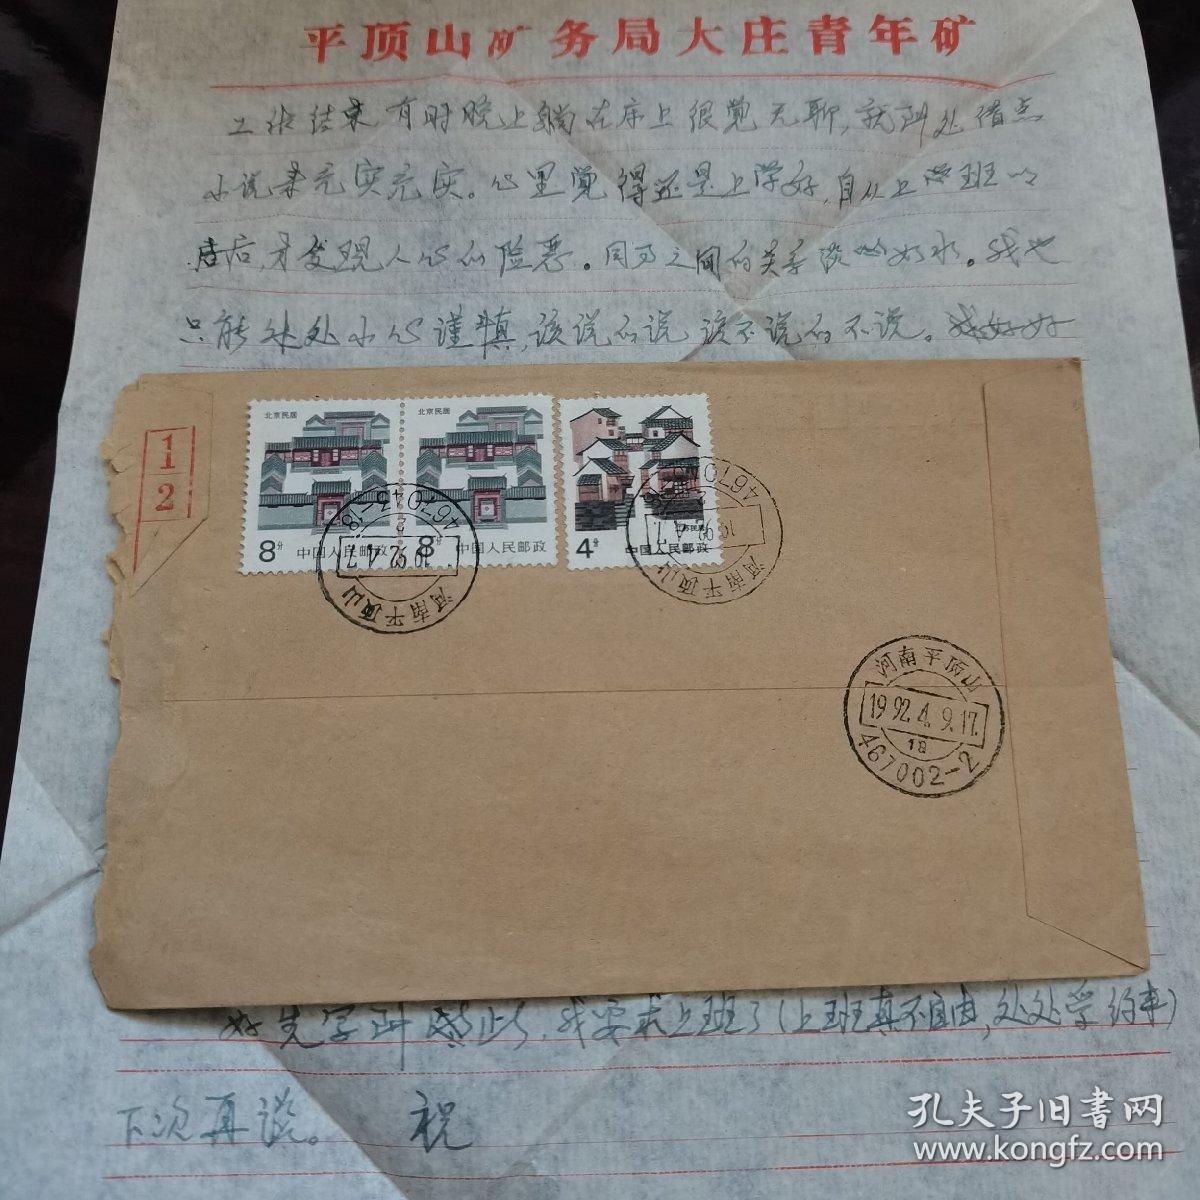 平顶山矿务局大庄青年矿
工作结束有时晚上躺在床上很觉无聊,就到处借点
小说来充实充实。心里觉得还是上学好,自从上班以
后,才发现人心的险恶。同事之间的关系淡如水。我也
只能处处小心谨慎,该说的说该不说的不说。
1
2
北京民居
8分
中国人民邮政
北京民居
8分
中国人民邮政
4分
江苏民居
中国人民邮政
河南平顶山
1992.4.7
467043
河南平顶山
1992.4.7
467043
河南平顶山
1992.4.9.17.
18
467002-2
好先写到此,我要去上班了(上班真不自由,处处受约束)
下次再谈。 祝
孔夫子旧书网
www.kongfz.com